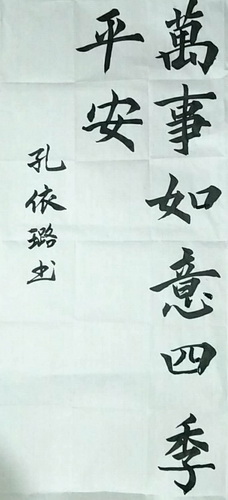 萬事如意四季
平安
孔依璐书